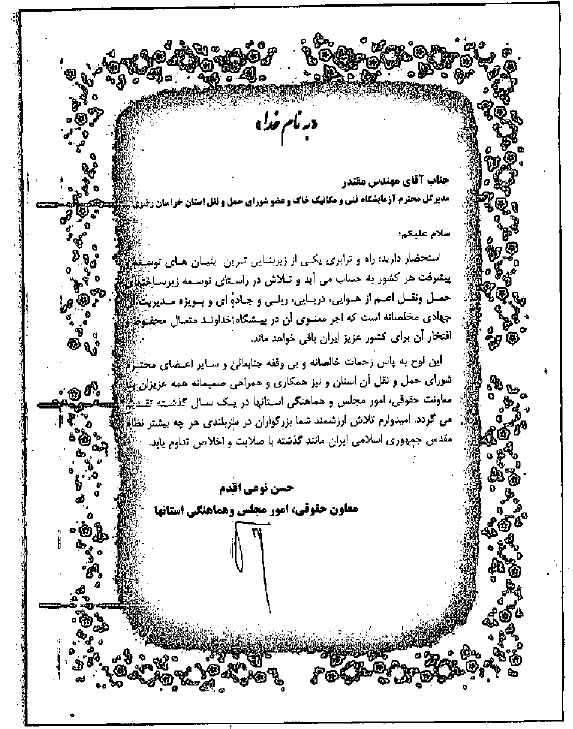 «به نام خدا»
جناب آقای مهندس مقتدر
مدیرکل محترم آزمایشگاه فنی و مکانیک خاک و عضو شورای حمل و نقل استان خراسان رضوی
سلام علیکم؛
استحضار دارید؛ راه و ترابری یکی از زیربنایی ترین بنیان های توسعه
پیشرفت هر کشور به حساب می آید و تلاش در راستای توسعه زیرساختهای
حمل ونقل اعم از هوایی، دریایی، ریلی و جاده ای و بویژه مدیریت
جهادی مخلصانه است که اجر معنوی آن در پیشگاه خداوند متعال محفوظ
افتخار آن برای کشور عزیز ایران باقی خواهد ماند.
این لوح به پاس زحمات خالصانه و بی وقفه جنابعالی و سایر اعضای محترم
شورای حمل و نقل آن استان و نیز همکاری و همراهی صمیمانه همه عزیزان
معاونت حقوقی، امور مجلس و هماهنگی استانها در یک سال گذشته
می گردد. امیدوارم تلاش ارزشمند شما بزرگواران در سربلندی هر چه بیشتر نظام
مقدس جمهوری اسلامی ایران مانند گذشته با صلابت و اخلاص تداوم یابد.
حسن نوعی اقدم
معاون حقوقی، امور مجلس وهماهنگی استانها